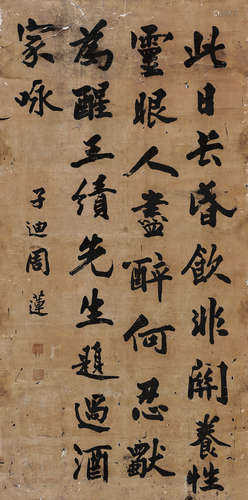 此日長昏飲非關養性
靈眼人盡醉何忍獻
為醒王績先生題過酒
家咏
子迪周蓮